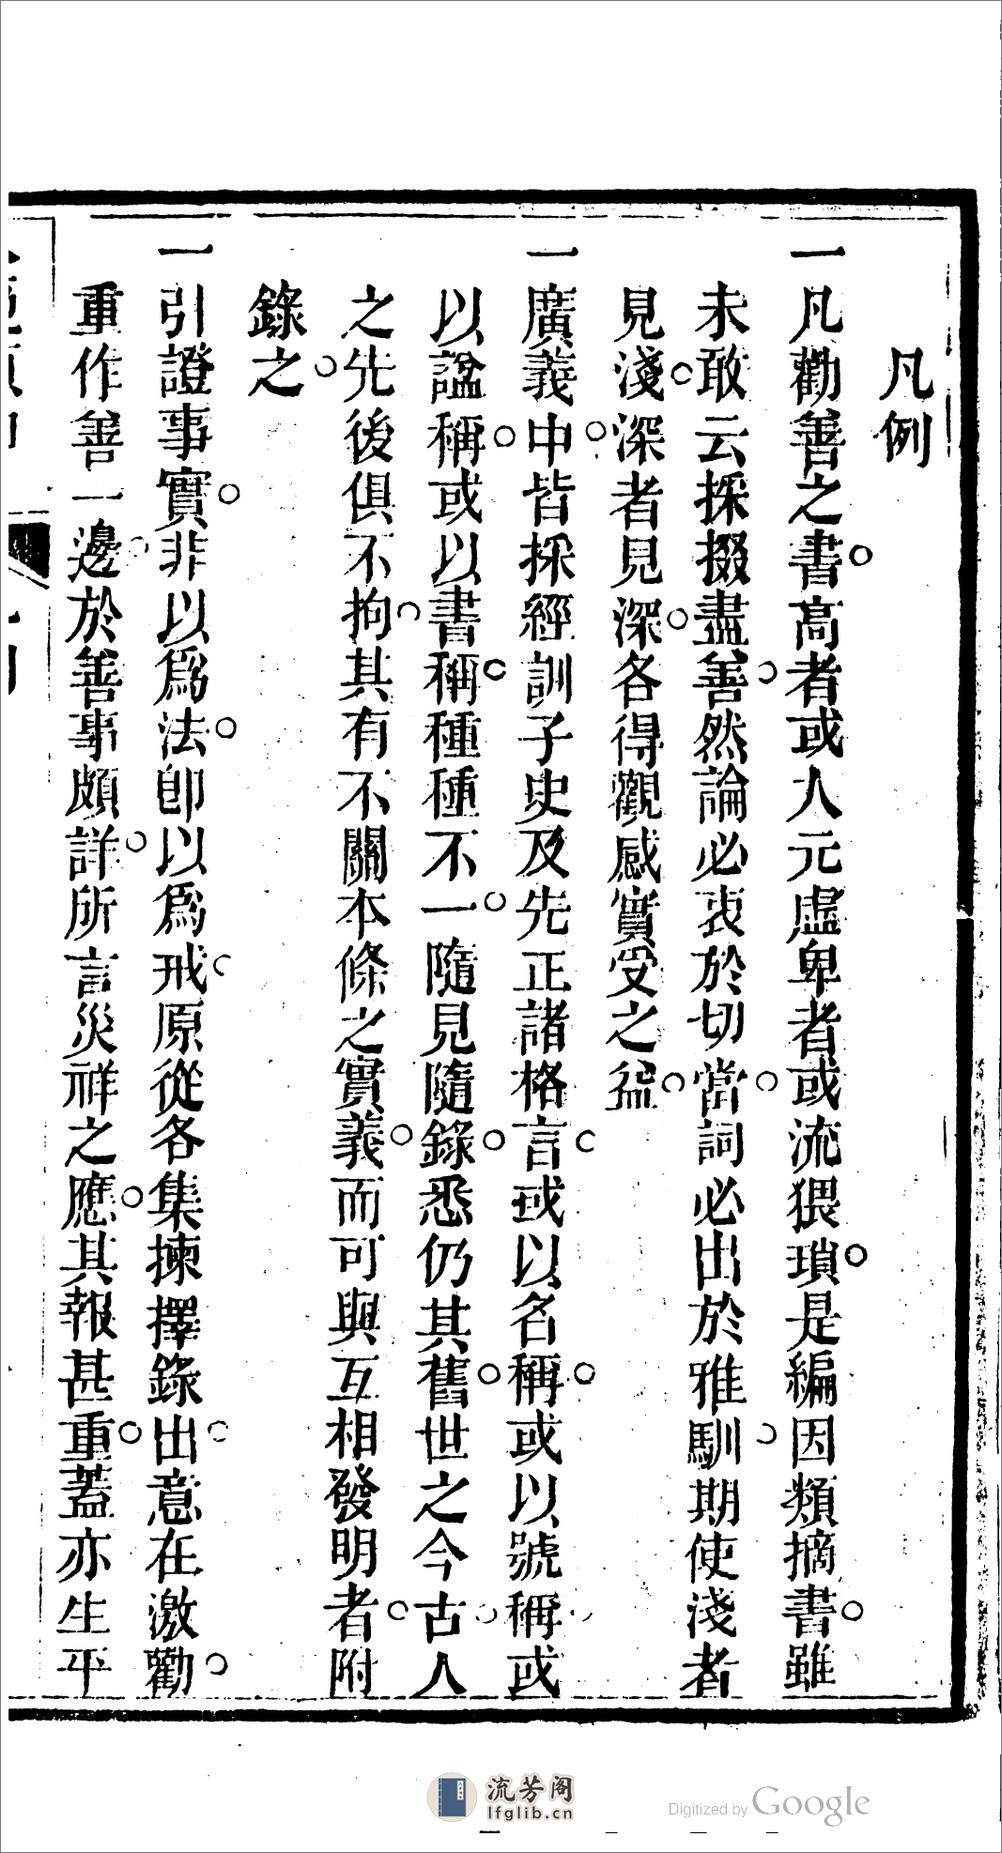 凡例
一凡勸善之書高者或人元虛卑者或流猥瑣是編因類摘書雖
未敢云採掇盡善然論必衷於切當詞必出於雅馴期使淺者
見淺深者見深各得觀感實受之益
一廣義中皆採經訓子史及先正諸格言或以名稱或以號稱或
以諡稱或以書稱種種不一隨見隨錄悉仍其舊世之今古人
之先後俱不拘其有不關本條之實義而可與互相發明者附
錄之
一引證事實非以爲法卽以爲戒原從各集揀擇錄出意在激勸
重作善一邊於善事頗詳所言災祥之應其報甚重蓋亦生平
流芳阁
lfglib.cn
Digitized by Google